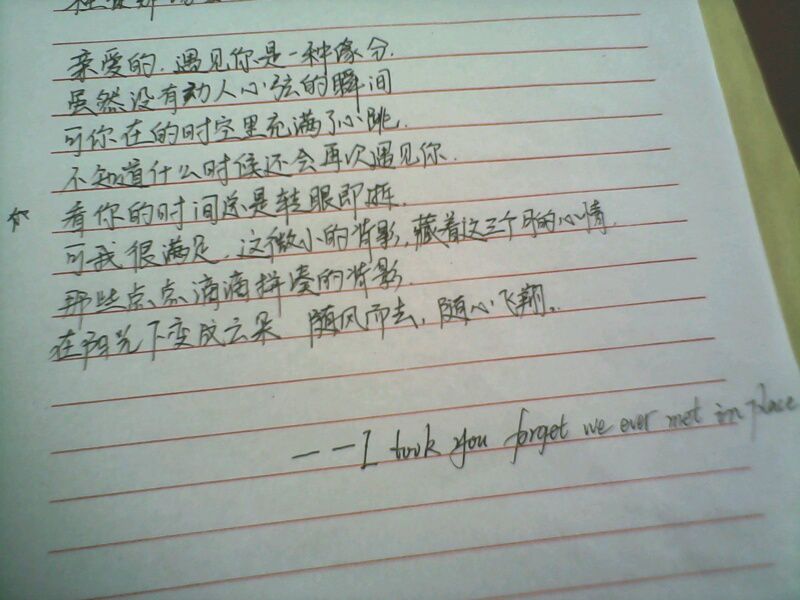 亲爱的.遇见你是一种缘分.
虽然没有动人心弦的瞬间
可你在的时空里充满了心跳.
不知道什么时候还会再次遇见你.
看你的时间总是转眼即逝.
可我很满足.这微小的背影,藏着这三个月的心情.
那些点点滴滴拼凑的背影.
在阳光下变成云朵 随风而去,随心飞翔。
——I took you forget we ever met in place